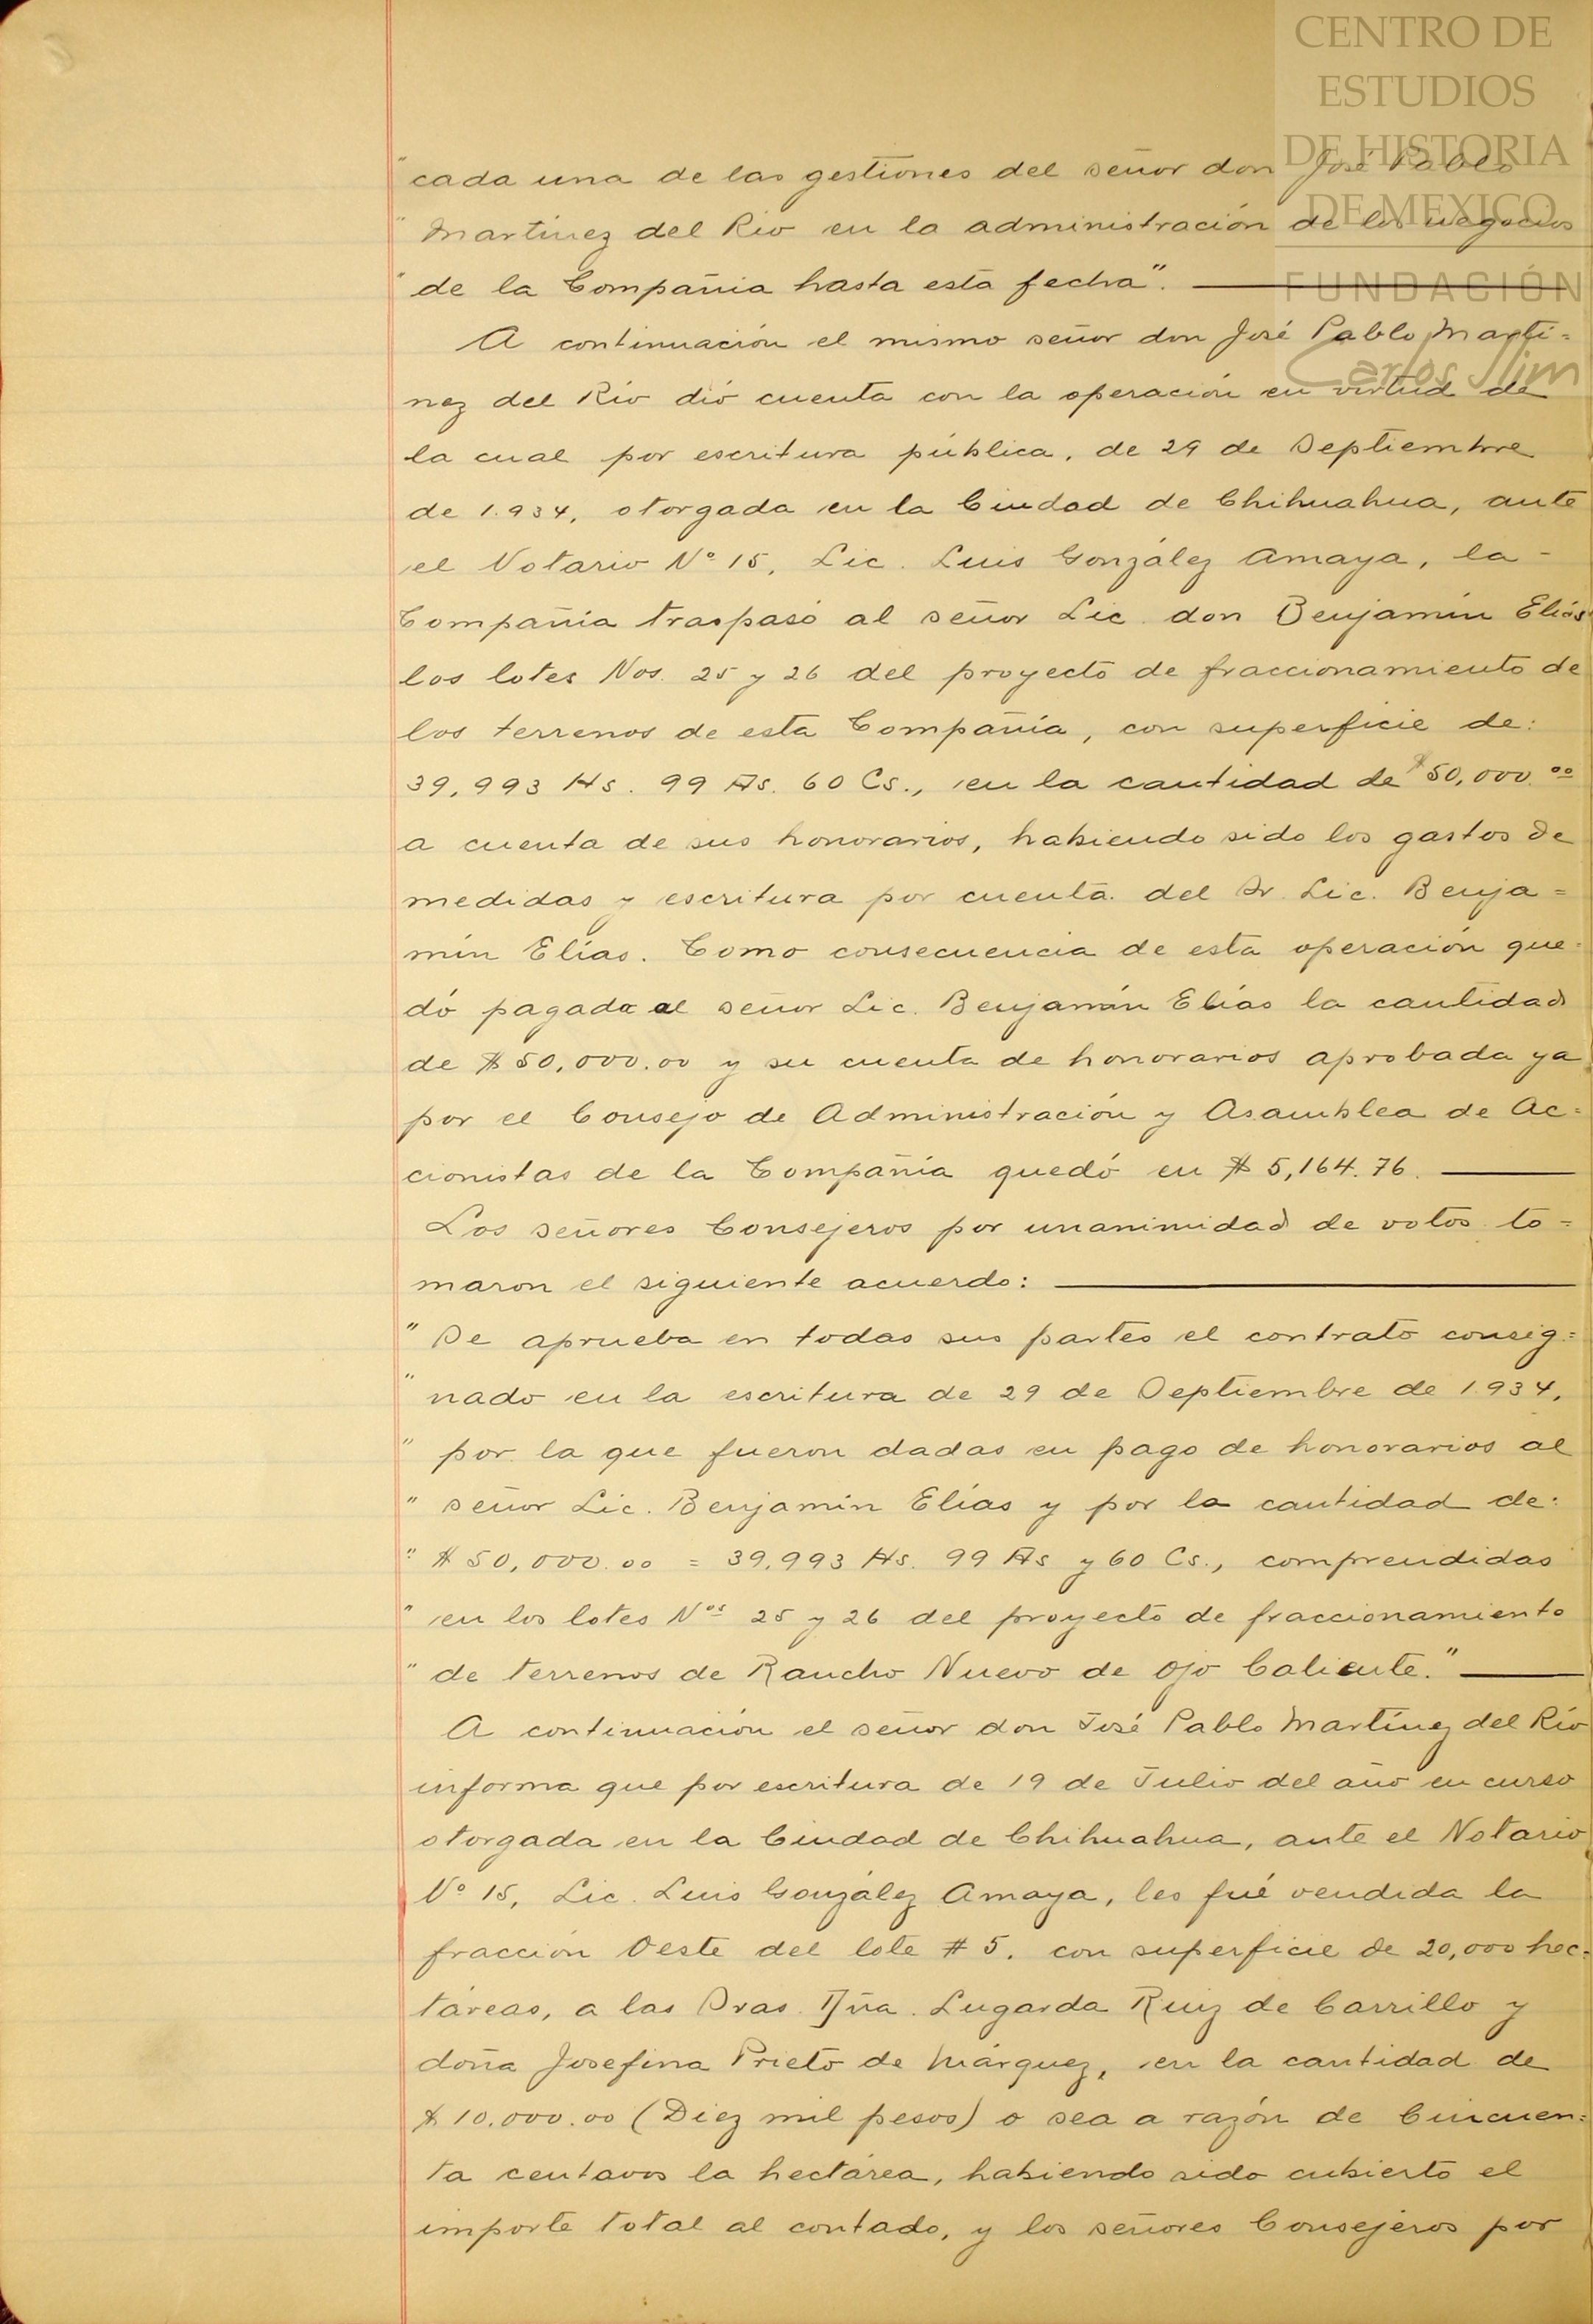 CENTRO DE
ESTUDIOS
DE HISTORIA
DE MEXICO
FUNDACIÓN
Carlos Slim
" cada una de las gestiones del señor don José Pablo
" Martínez del Rio en la administración de los negocios
" de la Compañia hasta esta fecha".
A continuación el mismo señor don José Pablo Martí=
nez del Río dió cuenta con la operación en virtud de
la cual por escritura pública, de 29 de Septiembre
de 1.934, otorgada en la Ciudad de Chihuahua, ante
el Notario Nº 15, Lic. Luis González Amaya, la -
Compañía traspasó al señor Lic. don Benjamín Elías
los lotes Nos. 25 y 26 del proyecto de fraccionamiento de
los terrenos de esta Compañía, con superficie de:
39,993 Hs. 99 As. 60 Cs., en la cantidad de $50,000.oo
a cuenta de sus honorarios, habiendo sido los gastos de
medidas y escritura por cuenta del Sr. Lic. Benja=
mín Elías. Como consecuencia de esta operación que=
dó pagada al señor Lic. Benjamín Elías la cantidad
de $50,000.00 y su cuenta de honorarios aprobada ya
por el Consejo de Administración y Asamblea de Ac=
cionistas de la Compañía quedó en $5,164.76.
Los señores Consejeros por unanimidad de votos to=
maron el siguiente acuerdo:
" Se aprueba en todas sus partes el contrato consig=
" nado en la escritura de 29 de Septiembre de 1.934,
" por la que fueron dadas en pago de honorarios al
" señor Lic. Benjamín Elías y por la cantidad de:
" $50,000.00 = 39,993 Hs. 99 As y 60 Cs., comprendidas
" en los lotes Nos 25 y 26 del proyecto de fraccionamiento
" de terrenos de Rancho Nuevo de Ojo Caliente."
A continuación el señor don José Pablo Martínez del Río
informa que por escritura de 19 de Julio del año en curso
otorgada en la Ciudad de Chihuahua, ante el Notario
Nº 15, Lic. Luis González Amaya, les fué vendida la
fracción Oeste del lote #5, con superficie de 20,000 hec=
táreas, a las Sras. Dña. Lugarda Ruiz de Carrillo y
doña Josefina Prieto de Márquez, en la cantidad de
$10.000.00 (Diez mil pesos) o sea a razón de Cincuen=
ta centavos la hectárea, habiendo sido cubierto el
importe total al contado, y los señores Consejeros por